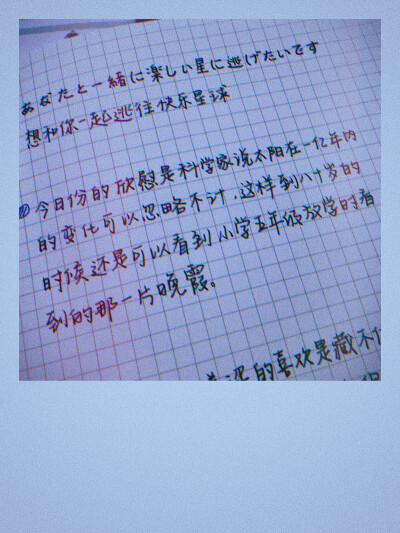 あなたと一緒に楽しい星に逃げたいです
想和你一起逃往快乐星球
①今日份的欣慰是科学家说太阳在一亿年内
的变化可以忽略不计,这样到八十岁的
时候还是可以看到小学五年级放学时看
到的那一片晚霞。
的喜欢是藏不